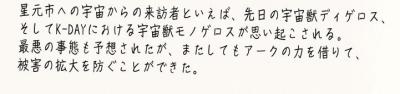 星元市への宇宙からの来訪者といえば、先日の宇宙獣ディゲロス、
そしてK-DAYにおける宇宙獣モノゲロスが思い起こされる。
最悪の事態も予想されたが、またしてもアークの力を借りて、
被害の拡大を防ぐことができた。